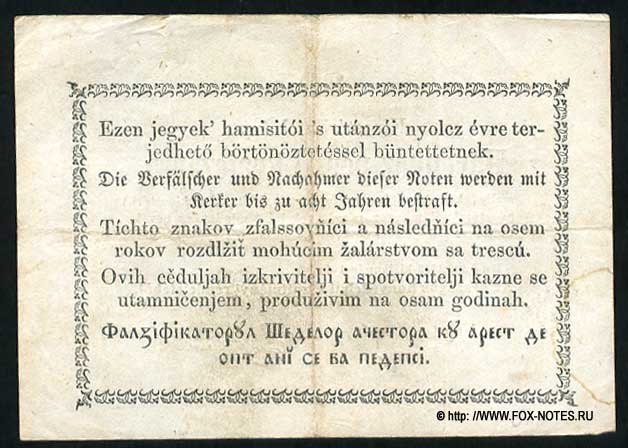 Ezen jegyek' hamisitói 's utánzói nyolcz évre ter-
jedhető börtönöztetéssel büntettetnek.
Die Verfälscher und Nachahmer dieser Noten werden mit
Kerker bis zu acht Jahren bestraft.
Tíchto znakov zfalssovňíci a následňíci na osem
rokov rozdlžiť mohúcim žalárstvom sa trescú.
Ovih cěduljah izkrivitelji i spotvoritelji kazne se
utamničenjem, produživim na osam godinah.
Фалꙁіфікаторꙋл Шеделор ачестора кꙋ арест де
опт анĭ се ва педепсі.
© http: //WWW.FOX-NOTES.RU